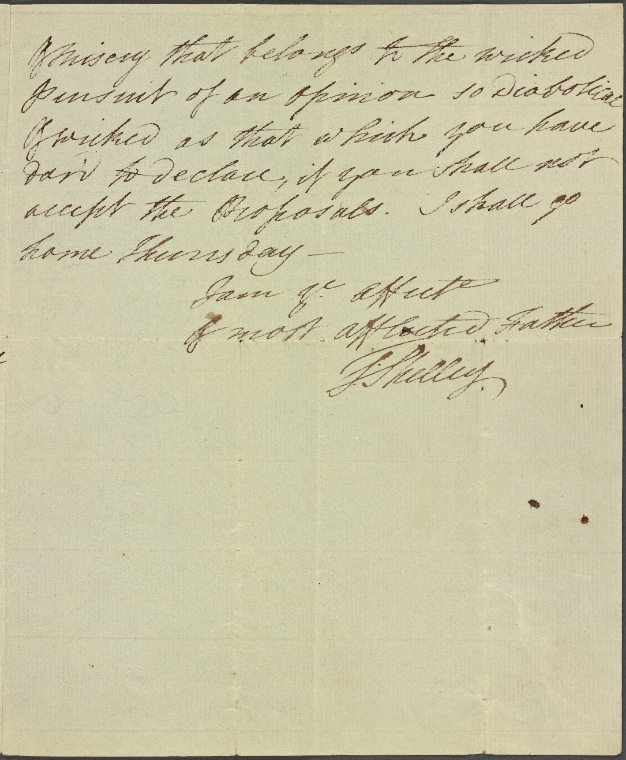 & misery that belongs to the wicked
pursuit of an opinion so diabolical
& wicked as that which you have
dar'd to declare, if you shall not
accept the Proposals. I shall go
home Thursday —
I am yr affecte
& most afflicted Father
T Shelley.